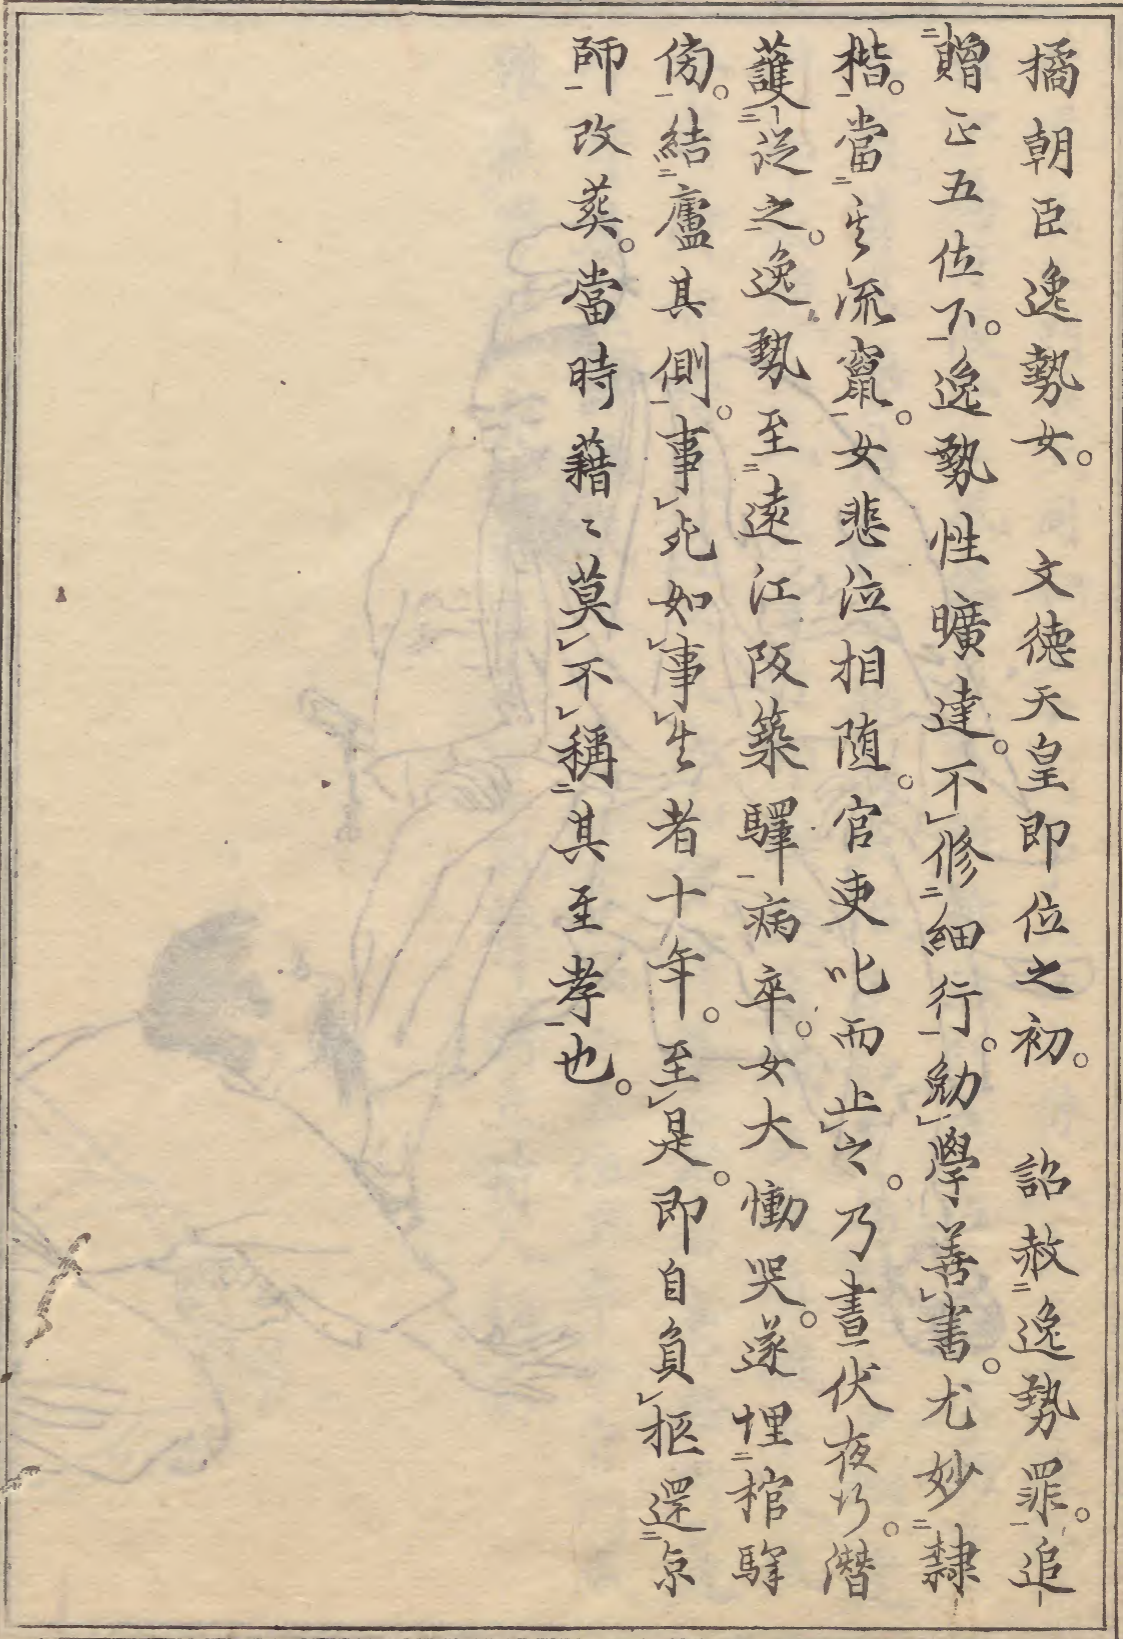 橘朝臣逸勢女。文德天皇即位之初。詔赦逸勢罪。追
贈正五位下。逸勢性曠達。不修細行。勉學善書。尤妙隷
楷。當坐流竄。女悲泣相随。官吏叱而止之。乃晝伏夜行。潛
護從之。逸勢至遠江阪築驛病卒。女大慟哭。遂埋棺驛
傍。結廬其側。事死如事生者十年。至是。即自負柩還京
師改葬。當時藉〻莫不稱其至孝也。